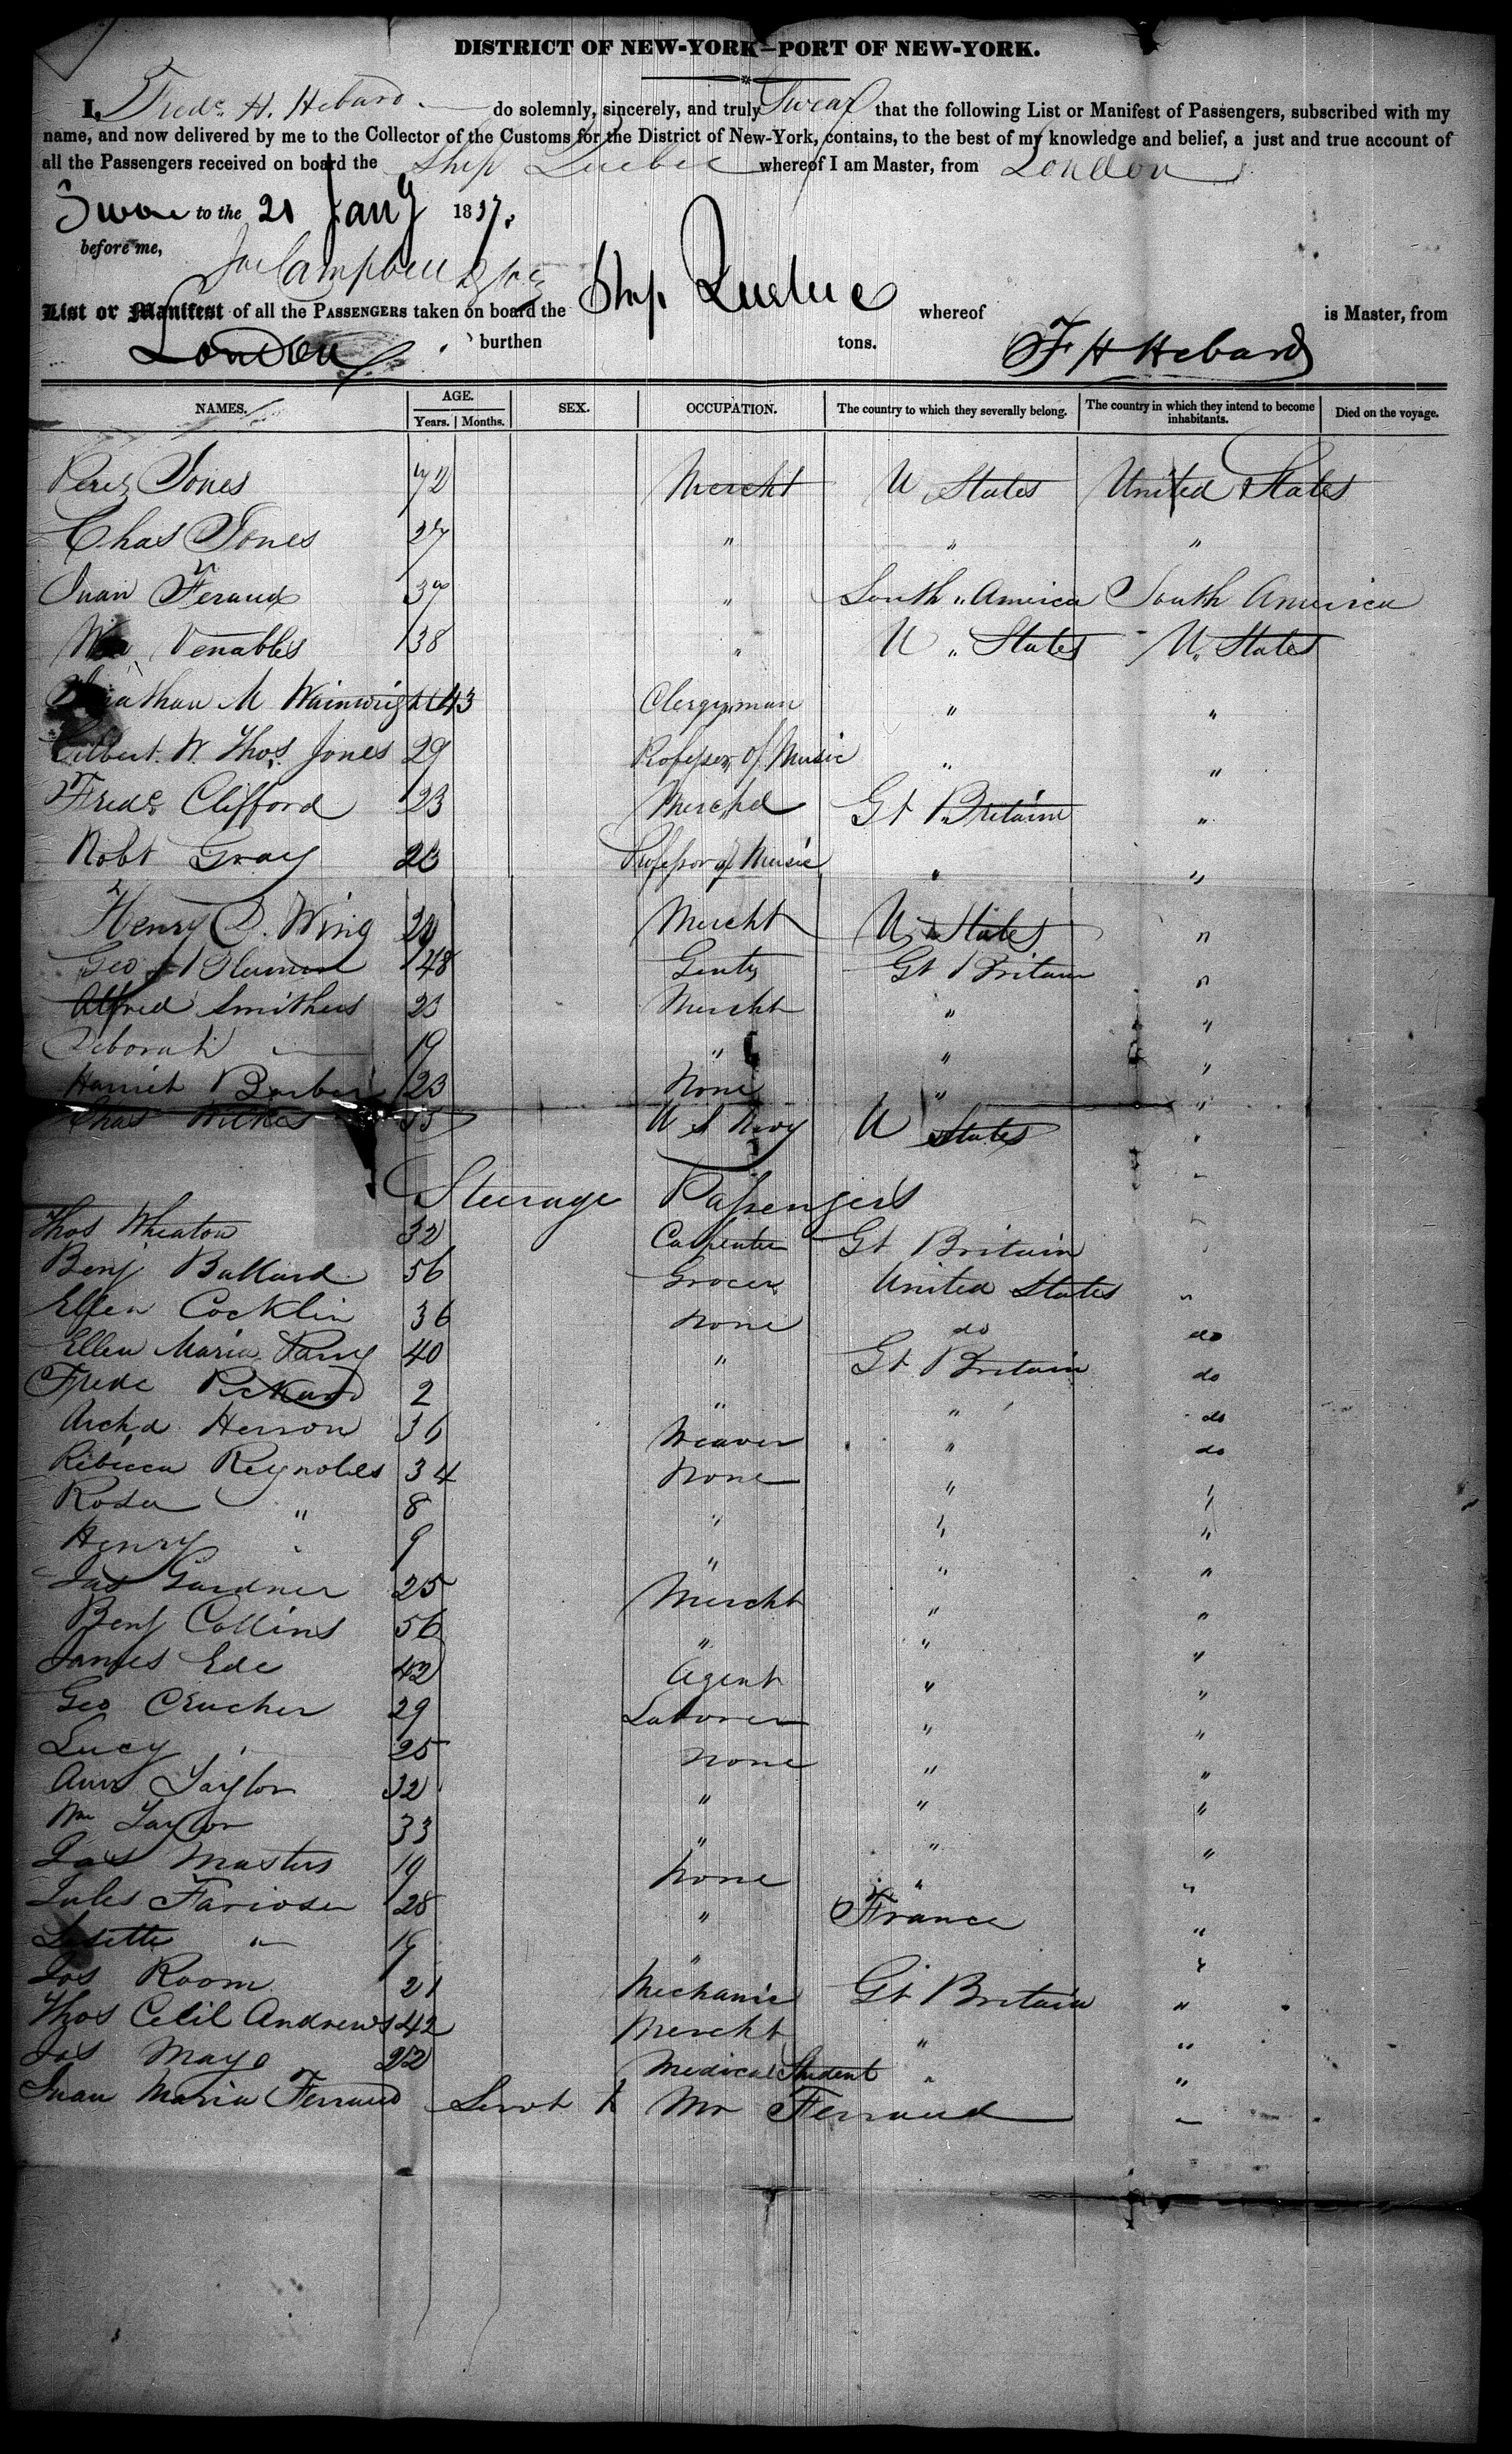 DISTRICT OF NEW-YORK—PORT OF NEW-YORK.
I, Fredc. H. Hebard do solemnly, sincerely, and truly Swear that the following List or Manifest of Passengers, subscribed with my
name, and now delivered by me to the Collector of the Customs for the District of New-York, contains, to the best of my knowledge and belief, a just and true account of
all the Passengers received on board the Ship Quebec whereof I am Master, from London
Swore to the 21 Jany 1837.
before me,
Campbell
List or Manifest of all the PASSENGERS taken on board the Ship Quebec whereof is Master, from
London burthen tons. F H Hebard
NAMES. AGE. SEX. OCCUPATION. The country to which they severally belong. The country in which they intend to become inhabitants. Died on the voyage.
Years. Months.
Perez Jones 72 Mercht U States United States
Chas Jones 27 " " "
Juan Feraud 37 " South America South America
Wm Venables 38 " U States U. States
Jonathan M Wainwright 43 Clergyman " "
Gilbert. W. Thos. Jones 29 Professor of Music " "
Fredc. Clifford 23 Merchd Gt Britain "
Robt Gray 23 Professor of Music " "
Henry D. Wing Mercht U States "
Geo 48 Gentn Gt Britain "
Alfred Smithers 23 Mercht " "
Deborah — 19 " " "
Harriet Barber 23 None " "
Chas Wilkes 35 U S Navy U States "
Steerage Passengers
Thos Wheaton 32 Carpenter Gt Britain "
Benj Ballard 56 Grocer United States "
Ellen Cocklin 36 None do do
Ellen Maria Parry 40 " Gt Britain do
Fredc Pickard 2 " " do
Archd Herron 36 Weaver " do
Rebecca Reynolds 34 None " "
Rosa " 8 " " "
Henry " 9 " " "
Jas Gardner 25 Mercht " "
Benj Collins 56 " " "
James Ede 42 Agent " "
Geo Crucher 29 Laborer " "
Lucy " 25 None " "
Ann Taylor 32 " " "
Wm Taylor 33 " " "
Jas Masters 19 None " "
Jules 28 " France "
Lisette " 19 " "
Jos Room 21 Mechanic Gt Britain "
Thos Cecil Andrews 42 Mercht " "
Jas Mayo 22 Medical Student " "
Juan Maria Ferraud Servt to Mr Ferraud "